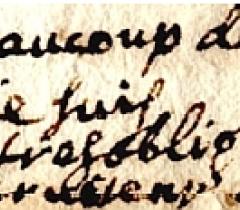 aucoup de
je suis
tresoblig